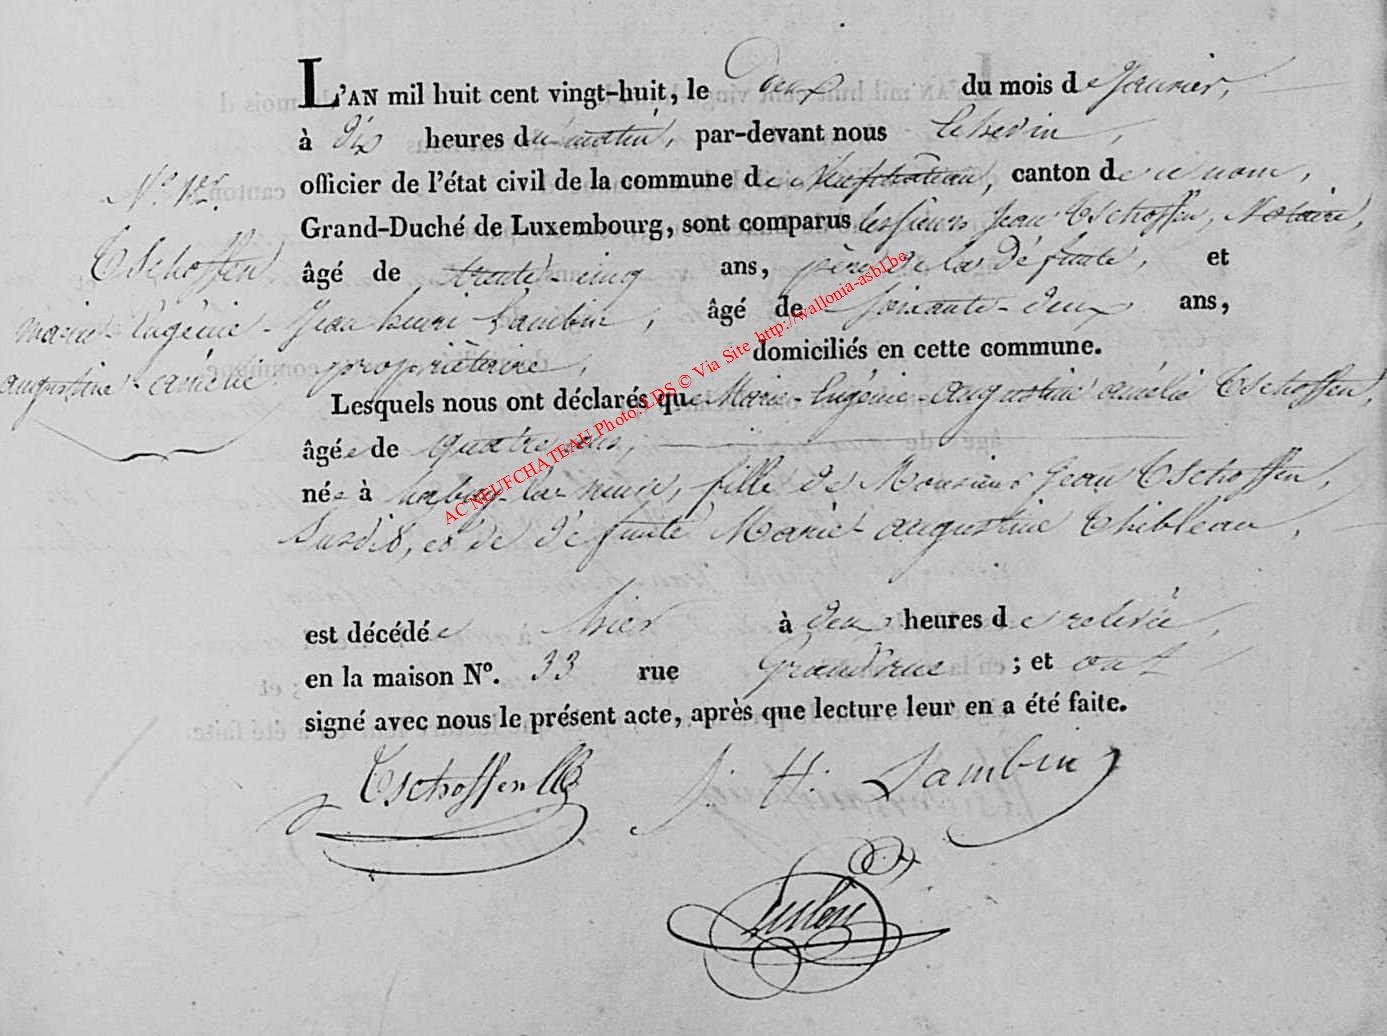 L'AN mil huit cent vingt-huit, le Deux du mois de Janvier,
à dix heures du matin, par-devant nous échevin,
officier de l'état civil de la commune de Neufchâteau, canton de ce nom,
Grand-Duché de Luxembourg, sont comparus les sieurs Jean Tschoffen, Notaire,
âgé de trente-cinq ans, père de la défunte, et
Jean henri Lambin, âgé de soixante-deux ans,
propriétaire, domiciliés en cette commune.
Lesquels nous ont déclarés que Marie-Eugénie-augustine amélie Tschoffen,
âgée de quatre ans,
née à habay-la-neuve, fille de Monsieur Jean Tschoffen,
susdit, et de défunte Marie augustine Thibleau,
est décédée hier à deux heures de relevée,
en la maison N°. 33 rue Grand'rue ; et ont
signé avec nous le présent acte, après que lecture leur en a été faite.
N.° 1er.
Tschoffen
marie-Eugénie-
augustine-amélie
Tschoffen
J. H. Lambin
AC NEUFCHATEAU Photo: LDS © Via Site http://wallonia-asbl.be